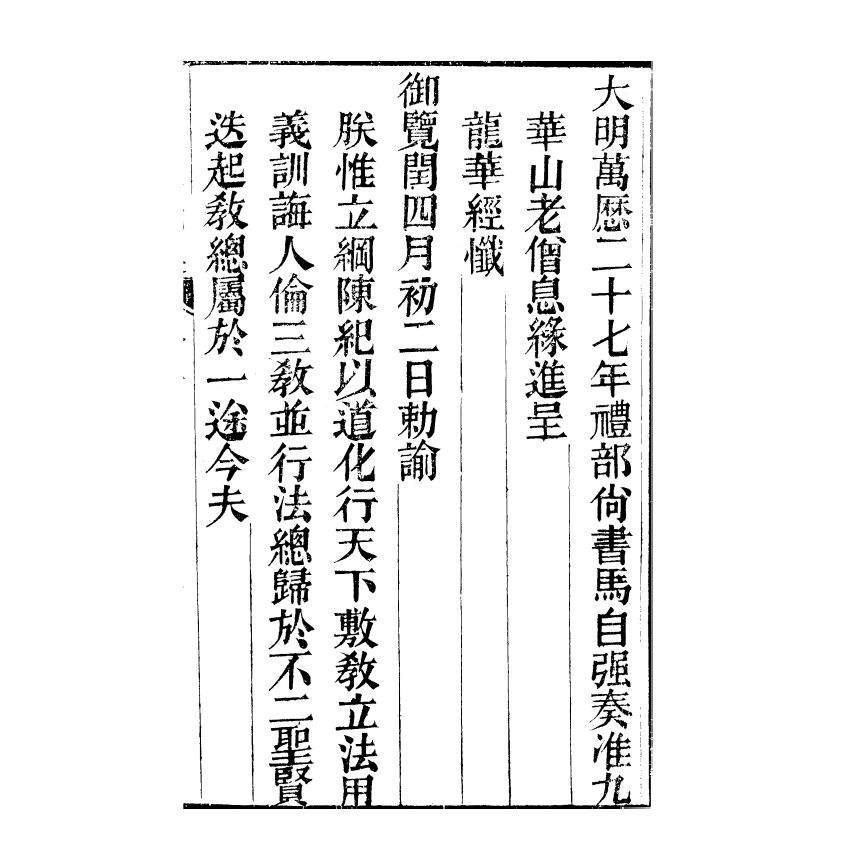 大明萬厯二十七年禮部尙書馬自强奏准九
華山老僧息緣進呈
龍華經懺
御覽閏四月初二日勅諭
朕惟立綱陳紀以道化行天下敷敎立法用
義訓誨人倫三敎並行法總歸於不二聖賢
迭起敎總屬於一途今夫